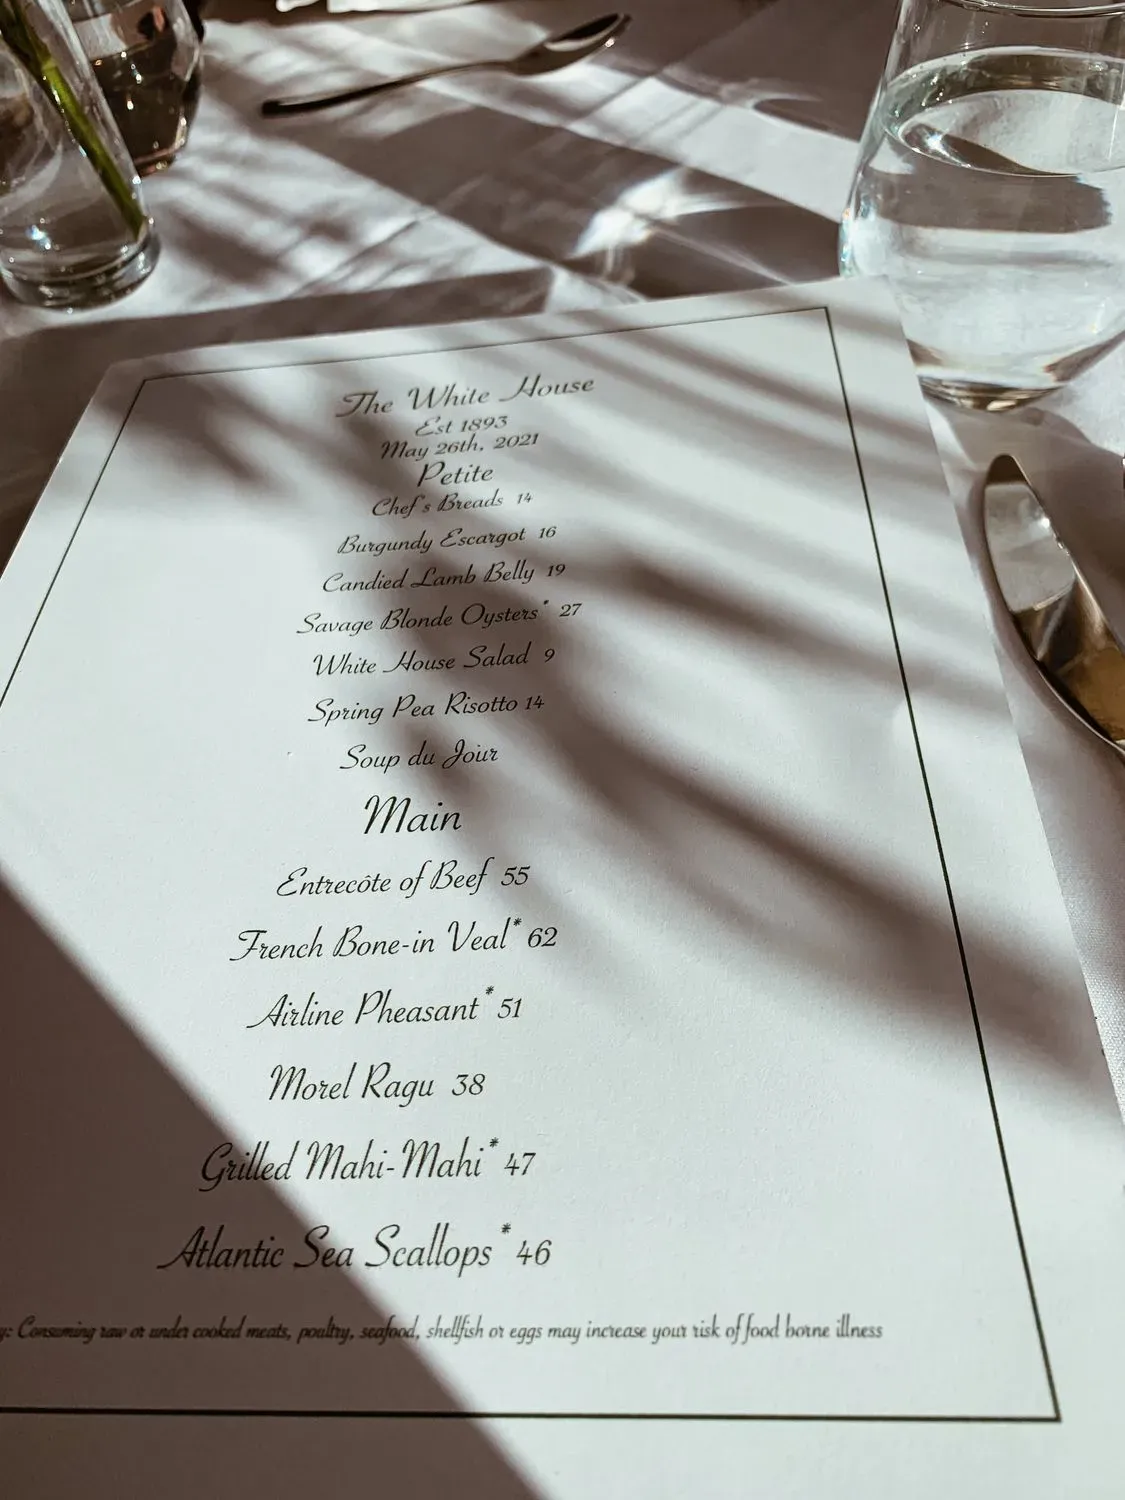 The White House
Est 1893
May 26th, 2021
Petite
Chef's Breads 14
Burgundy Escargot 16
Candied Lamb Belly 19
Savage Blonde Oysters* 27
White House Salad 9
Spring Pea Risotto 14
Soup du Jour
Main
Entrecôte of Beef 55
French Bone-in Veal* 62
Airline Pheasant* 51
Morel Ragu 38
Grilled Mahi-Mahi* 47
Atlantic Sea Scallops* 46
Consuming raw or under cooked meats, poultry, seafood, shellfish or eggs may increase your risk of food borne illness